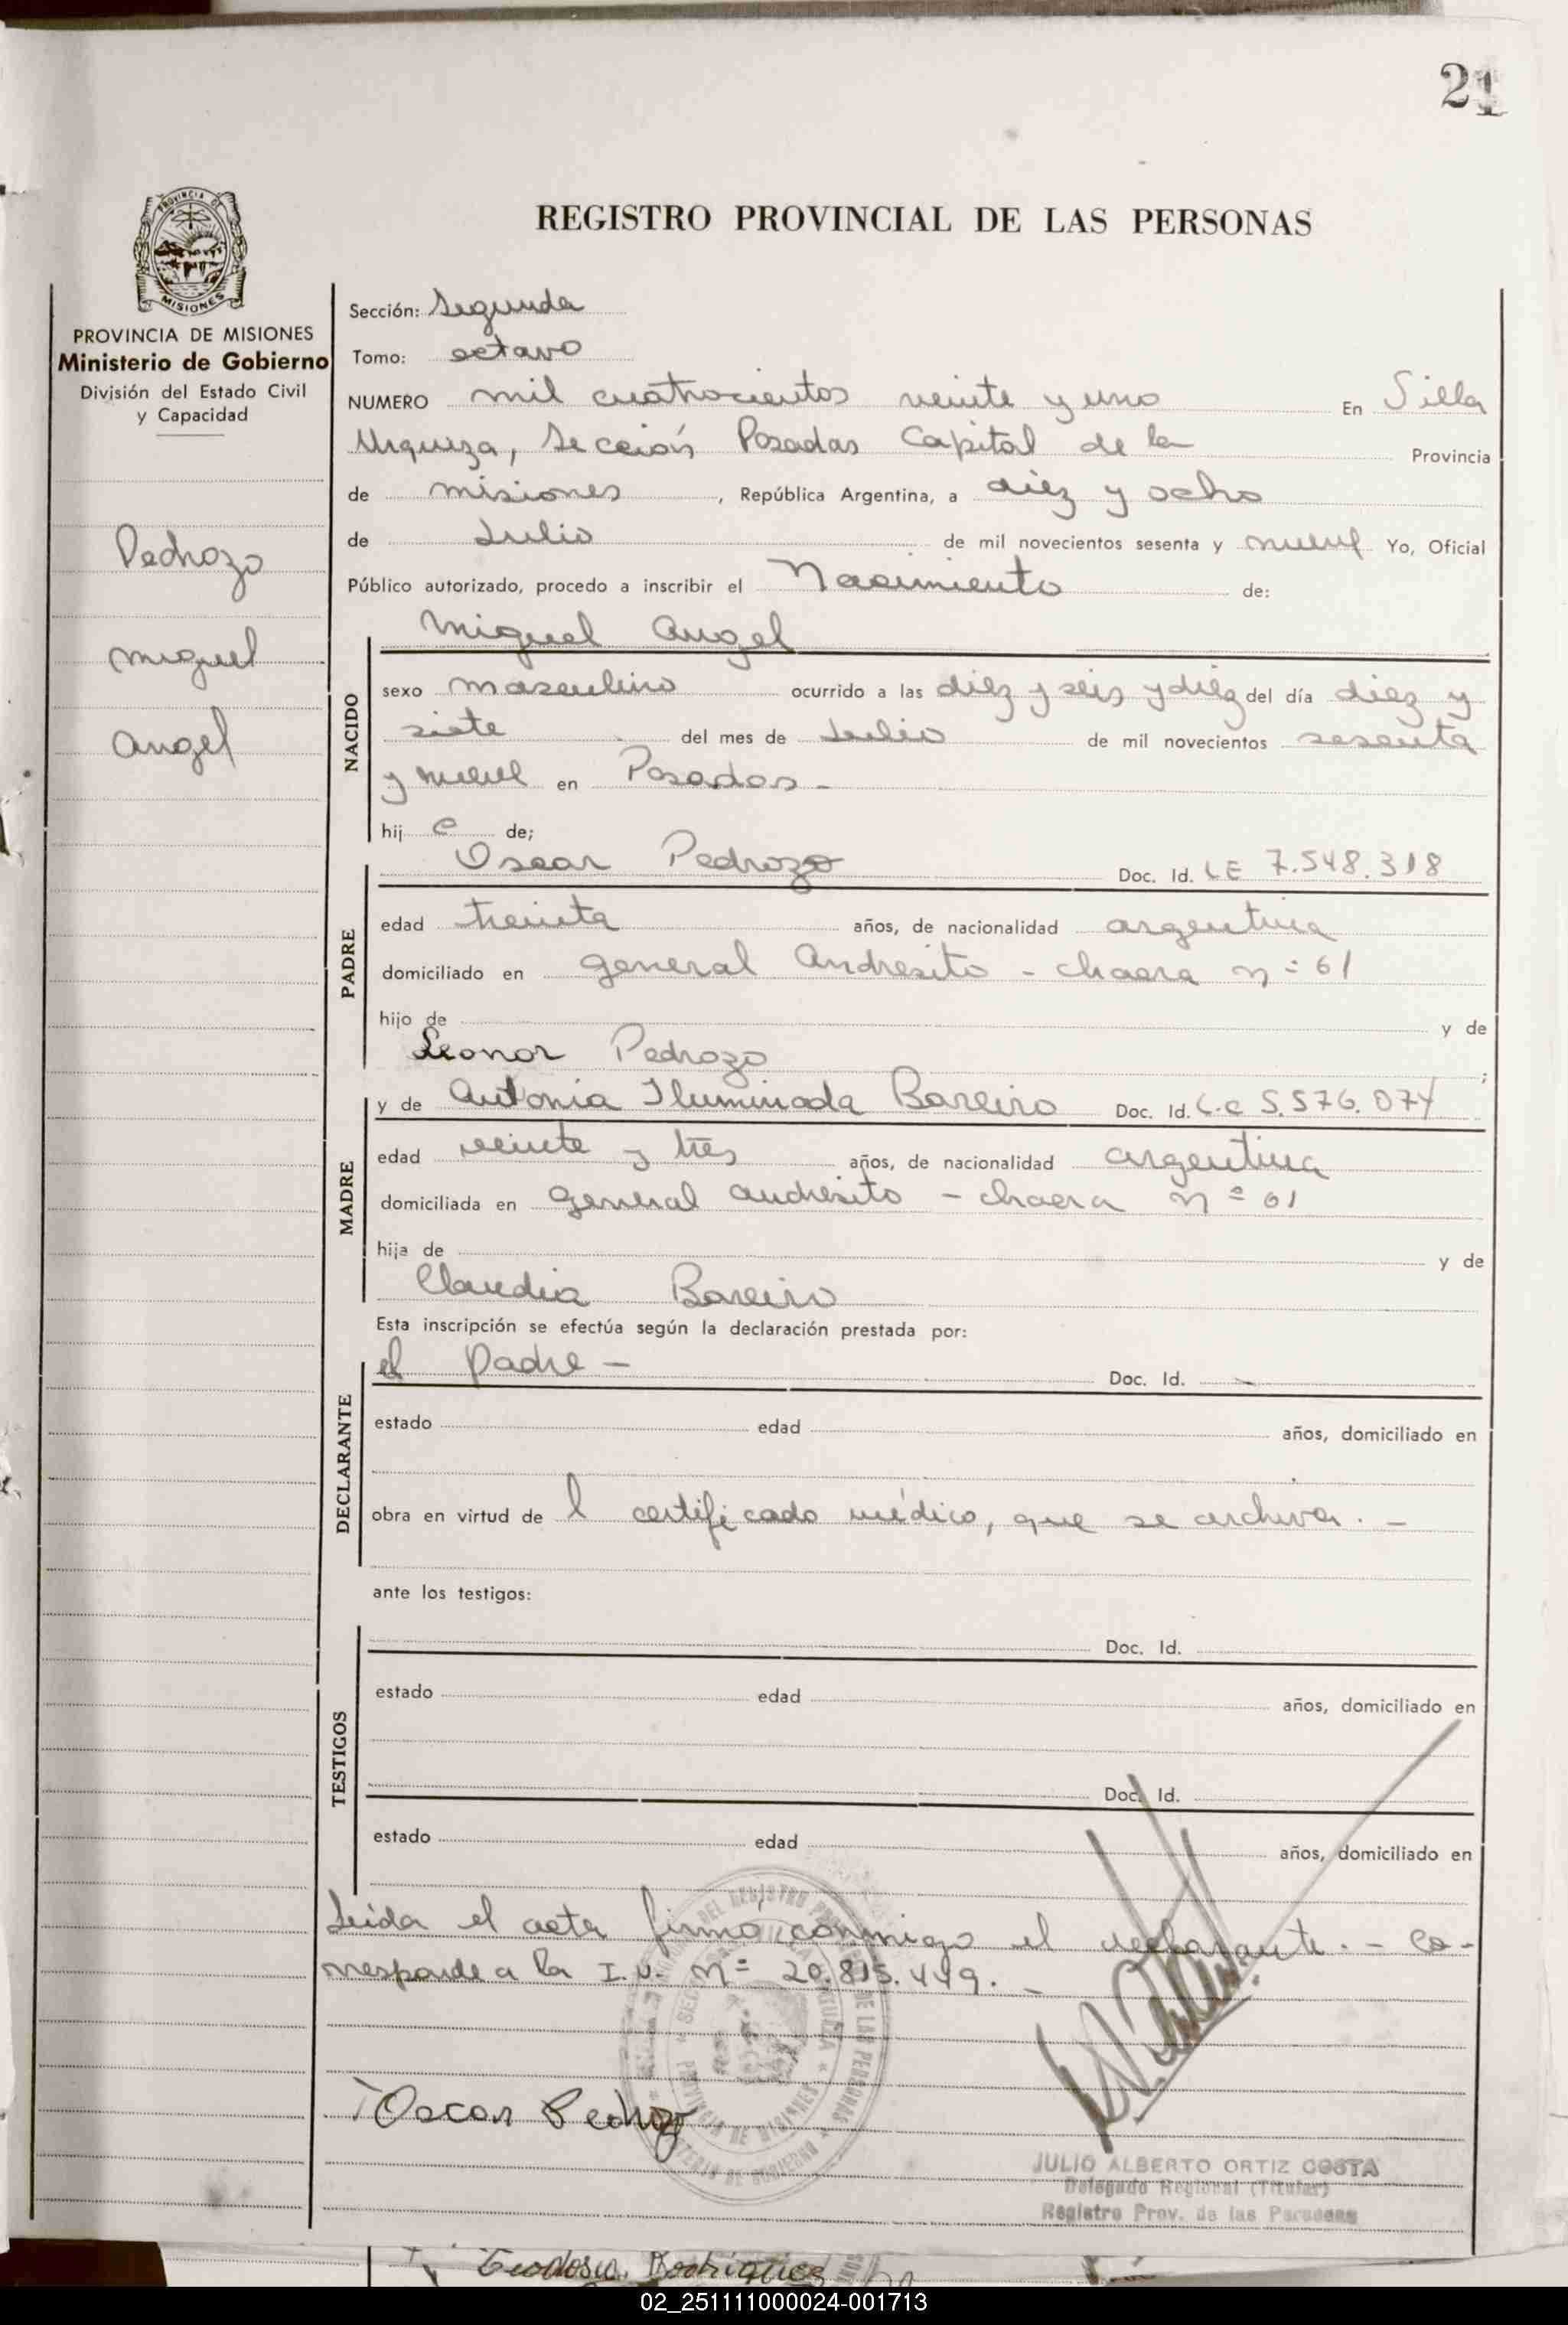 21
REGISTRO PROVINCIAL DE LAS PERSONAS
PROVINCIA DE MISIONES
MISIONES
PROVINCIA DE MISIONES
Ministerio de Gobierno
División del Estado Civil
y Capacidad
Pedrozo
Miguel
Angel
Sección: Segunda
Tomo: octavo
NUMERO mil cuatrocientos veinte y uno En Villa
Urquiza, Sección Posadas Capital de la Provincia
de misiones, República Argentina, a diez y ocho
de Julio de mil novecientos sesenta y nueve Yo, Oficial
Público autorizado, procedo a inscribir el Nacimiento de:
Miguel Angel
NACIDO
sexo masculino ocurrido a las diez y seis y diez del día diez y
siete del mes de Julio de mil novecientos sesenta
y nueve en Posadas -
hij o de;
Oscar Pedrozo Doc. Id. LE 7.548.318
PADRE
edad treinta años, de nacionalidad argentina
domiciliado en general Andresito - chacra nº 61
hijo de y de
Leonor Pedrozo ;
y de Antonia Iluminada Bareiro Doc. Id. L.C 5.576.074
MADRE
edad veinte y tres años, de nacionalidad argentina
domiciliada en general andresito - chacra nº 61
hija de y de
Claudia Bareiro
Esta inscripción se efectúa según la declaración prestada por:
el padre - Doc. Id. -
DECLARANTE
estado edad años, domiciliado en
obra en virtud de l certificado médico, que se archiva. -
ante los testigos:
Doc. Id.
TESTIGOS
estado edad años, domiciliado en
Doc. Id.
estado edad años, domiciliado en
Leida el acta firmó conmigo el declarante. - Co-
rresponde a la I.N. nº 20.815.449. -
Oscar Pedrozo
JULIO ALBERTO ORTIZ COSTA
Delegado Regional (Titular)
Registro Prov. de las Personas
Rodriguez
02_251111000024-001713